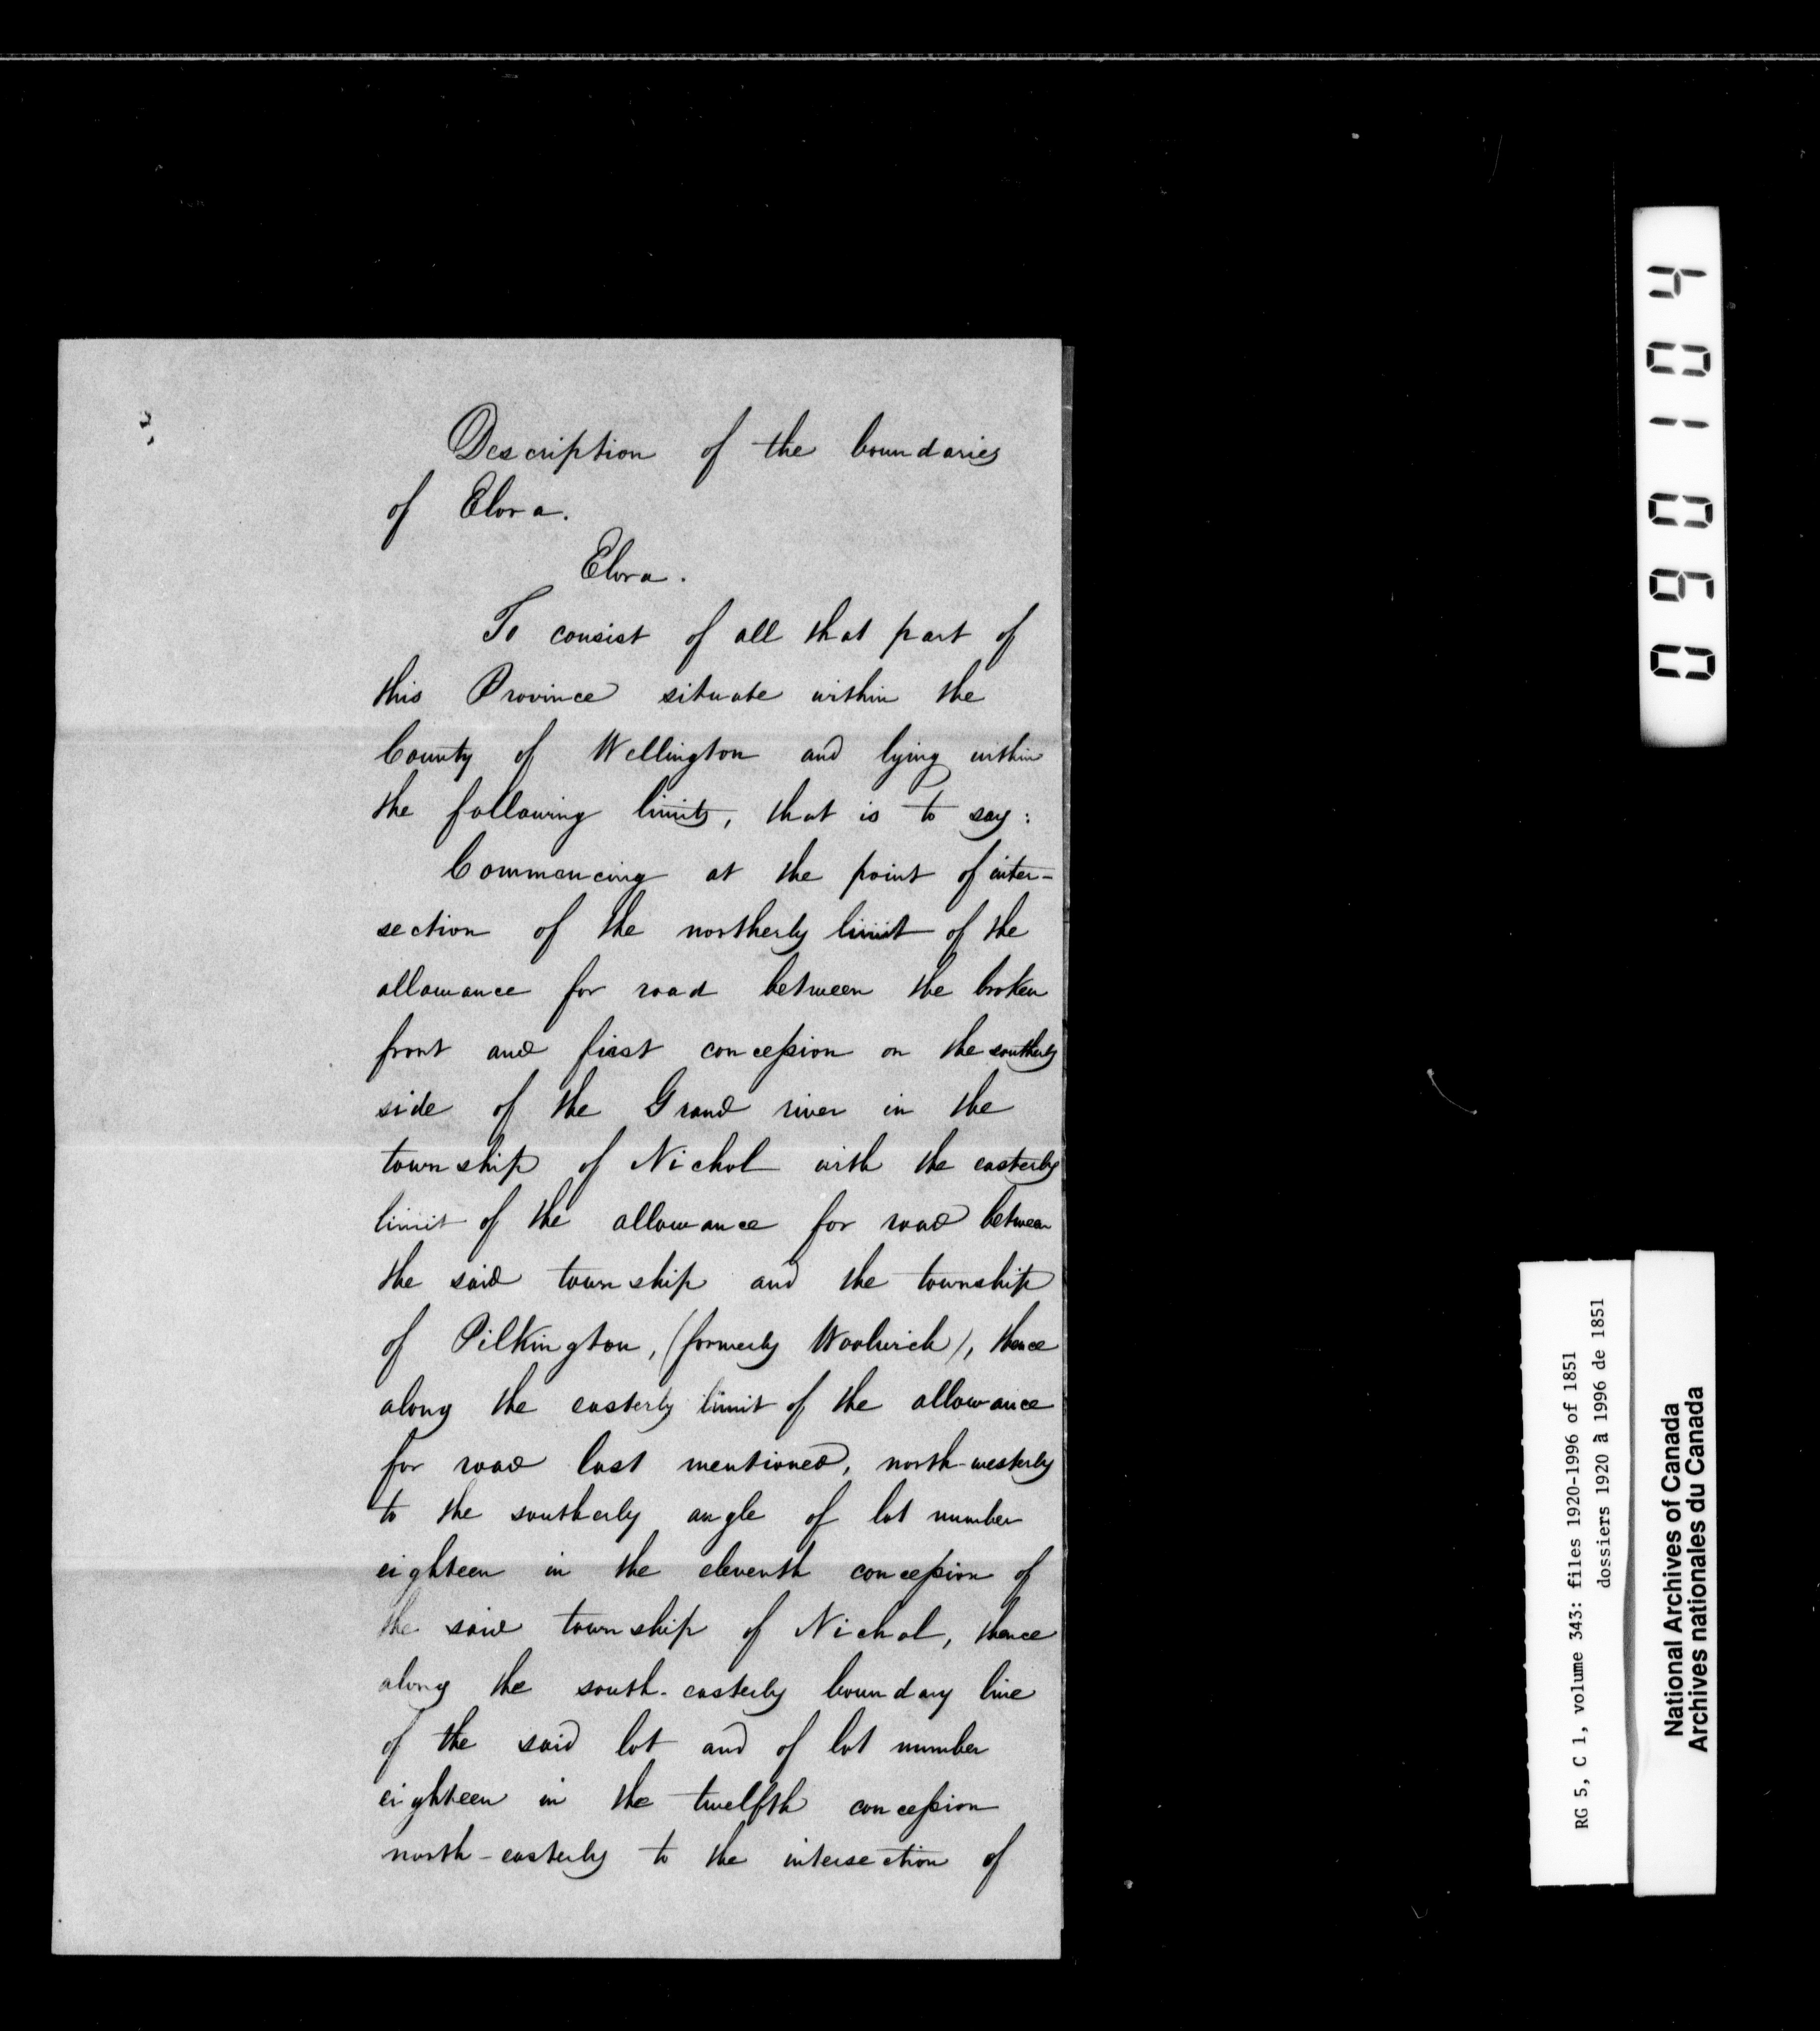 Description of the boundaries
of Elora.
Elora.
To consist of all that part of
this Province situate within the
County of Wellington and lying within
the following limits, that is to say:
Commencing at the point of inter-
section of the northerly limit of the
allowance for road between the broken
front and first concession on the southerly
side of the Grand river in the
township of Nichol with the easterly
limit of the allowance for road between
the said township and the township
of Pilkington, (formerly Woolwich), thence
along the easterly limit of the allowance
for road last mentioned, north-westerly
to the southerly angle of lot number
eighteen in the eleventh concession of
the said township of Nichol, thence
along the south-easterly boundary line
of the said lot and of lot number
eighteen in the twelfth concession
north-easterly to the intersection of
090104
RG 5, C 1, volume 343: files 1920-1996 of 1851
dossiers 1920 à 1996 de 1851
National Archives of Canada
Archives nationales du Canada